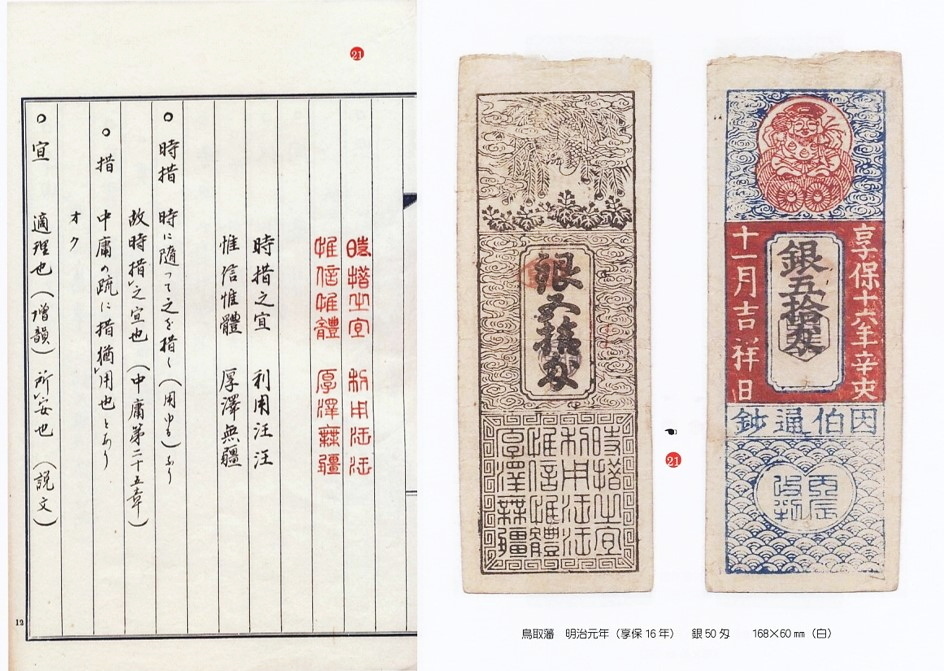 21
時措之宜 利用汪汪
惟信惟體 厚澤無疆
時措之宜 利用汪汪
惟信惟體 厚澤無疆
○時措 時に隨つて之を措く(用ゐる)なり
故時措之宜也(中庸第二十五章)
○措 中庸の疏に措猶用也とあり
オク
○宜 適理也(増韻)所安也(説文)
12
銀五拾匁
時措之宜
利用汪汪
惟信惟體
厚澤無疆
21
享保十六年辛亥
銀五拾匁
十一月吉祥日
因伯通鈔
丙辰
改判
鳥取藩 明治元年(享保16年) 銀50匁 168×60㎜(白)